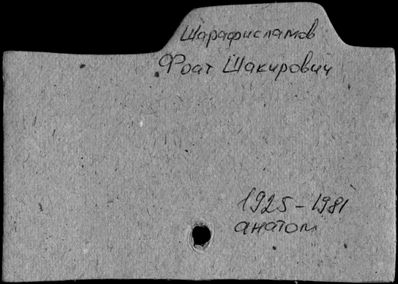 Шарафисламов
Фоат Шакирович
1925-1981
анатом